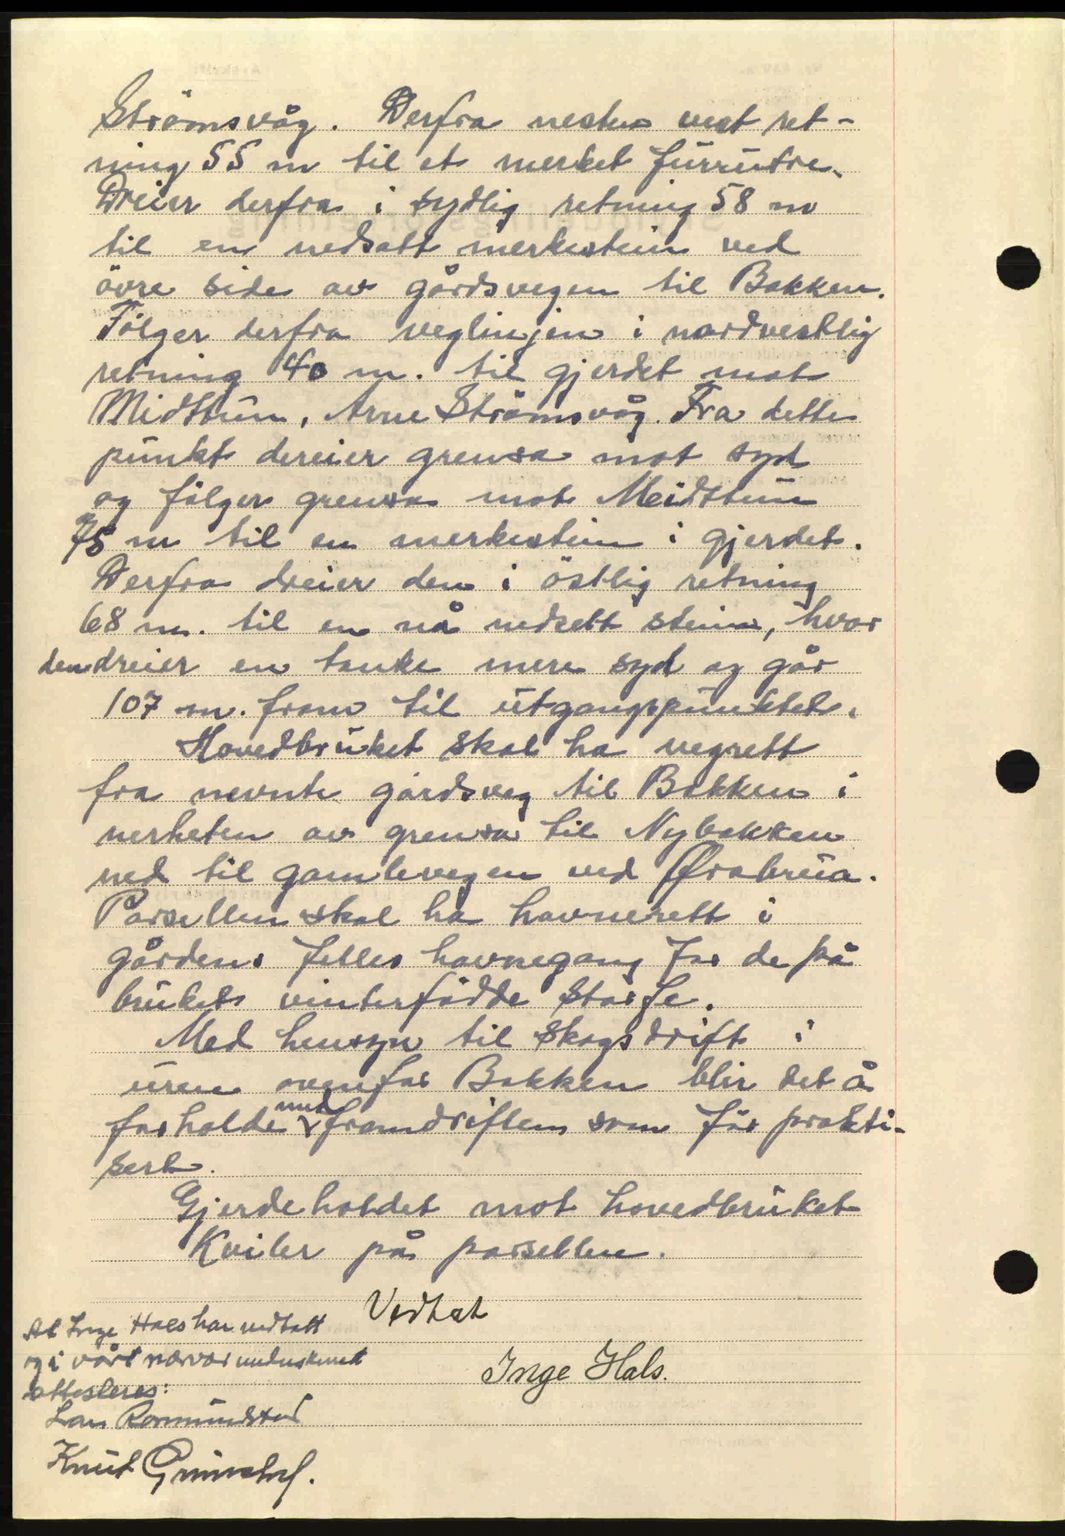 Strömsvåg. Derfra nesten vest ret-
ning 55 m til et merket furrutre.
Dreier derfra i sydlig retning 58 m
til en nedsatt merkestein ved
övre side av gårdsvegen til Bakken.
Fölger derfra veglinjen i nordvestlig
retning 40 m. til gjerdet mot
Midttun, Arne Strömsvåg. Fra dette
punkt dereier grensa mot syd
og fölger grensa mot Meidttun
75 m til en merkestein i gjerdet.
Derfra dreier den i östlig retning
68 m. til en nå nedsett stein, hvor
den dreier en tanke mere syd og går
107 m. fram til utgangspunktet.
Hovedbruket skal ha vegrett
fra nevnte gårdsveg til Bakken i
nerheten av grensa til Nybakken
ned til gamlevegen ved Ørabrua.
Parsellen skal ha havnerett i
gårdens felles havnegang for de på
bruket vinterfødde storfe.
Med hensyn til skogsdrift i
uren ovenfor Bakken blir det å
forholde med framdriften som för prakti-
sert.
Gjerdeholdet mot hovedbruket
Kviler på parsellen.
Vedtat
Inge Hals.
At Inge Hals har vedtatt
og i vårt nærvær underskrevet
attesteres:
Lars
Knut